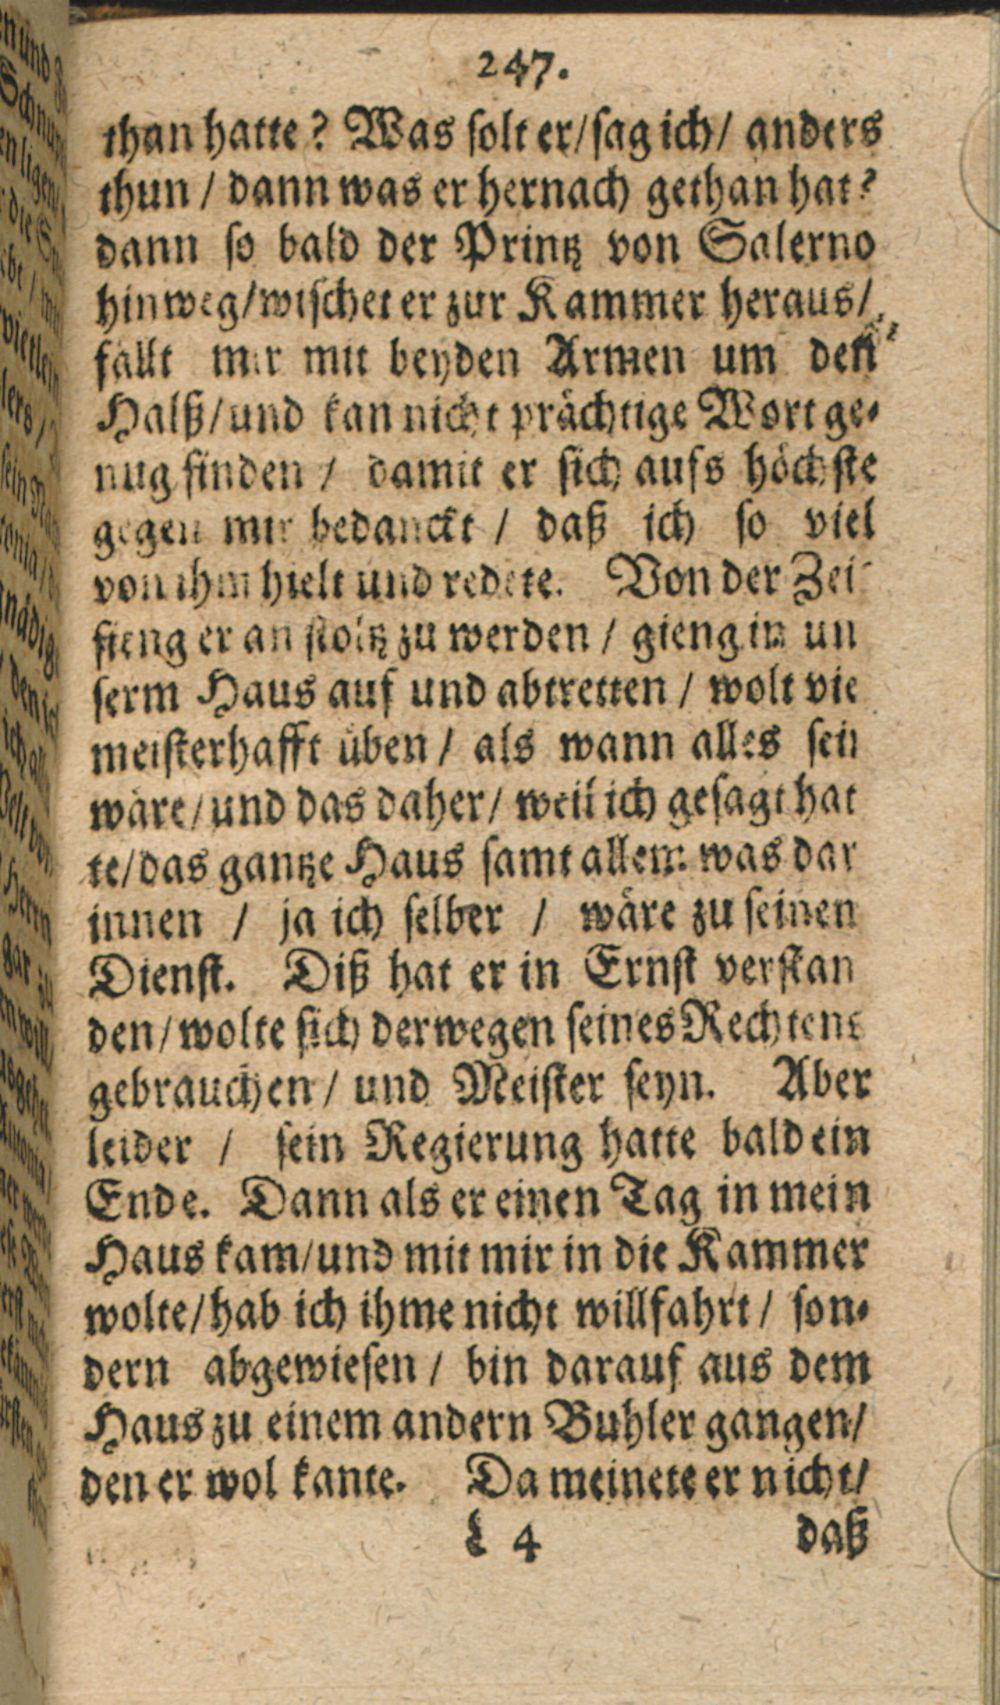 247.
than hatte? Was solt er/sag ich/ anders
thun / dann was er hernach gethan hat?
dann so bald der Printz von Salerno
hinweg/wischet er zur Kammer heraus/
fällt mir mit beyden Armen um den
Halß/und kan nicht prächtige Wort ge-
nug finden / damit er sich aufs höchste
gegen mir bedanckt / daß ich so viel
von ihm hielt und redete. Von der Zei
fieng er an stoltz zu werden / gieng in un
serm Haus auf und abtretten / wolt vie
meisterhafft üben / als wann alles sein
wäre/und das daher/ weil ich gesagt hat
te/das gantze Haus samt allem was dar
innen / ja ich selber / wäre zu seinen
Dienst. Diß hat er in Ernst verstan
den/wolte sich derwegen seines Rechtens
gebrauchen / und Meister seyn. Aber
leider / sein Regierung hatte bald ein
Ende. Dann als er einen Tag in mein
Haus kam/und mit mir in die Kammer
wolte/hab ich ihme nicht willfahrt / son-
dern abgewiesen / bin darauf aus dem
Haus zu einem andern Buhler gangen/
den er wol kante. Da meinete er nicht/
L 4 daß